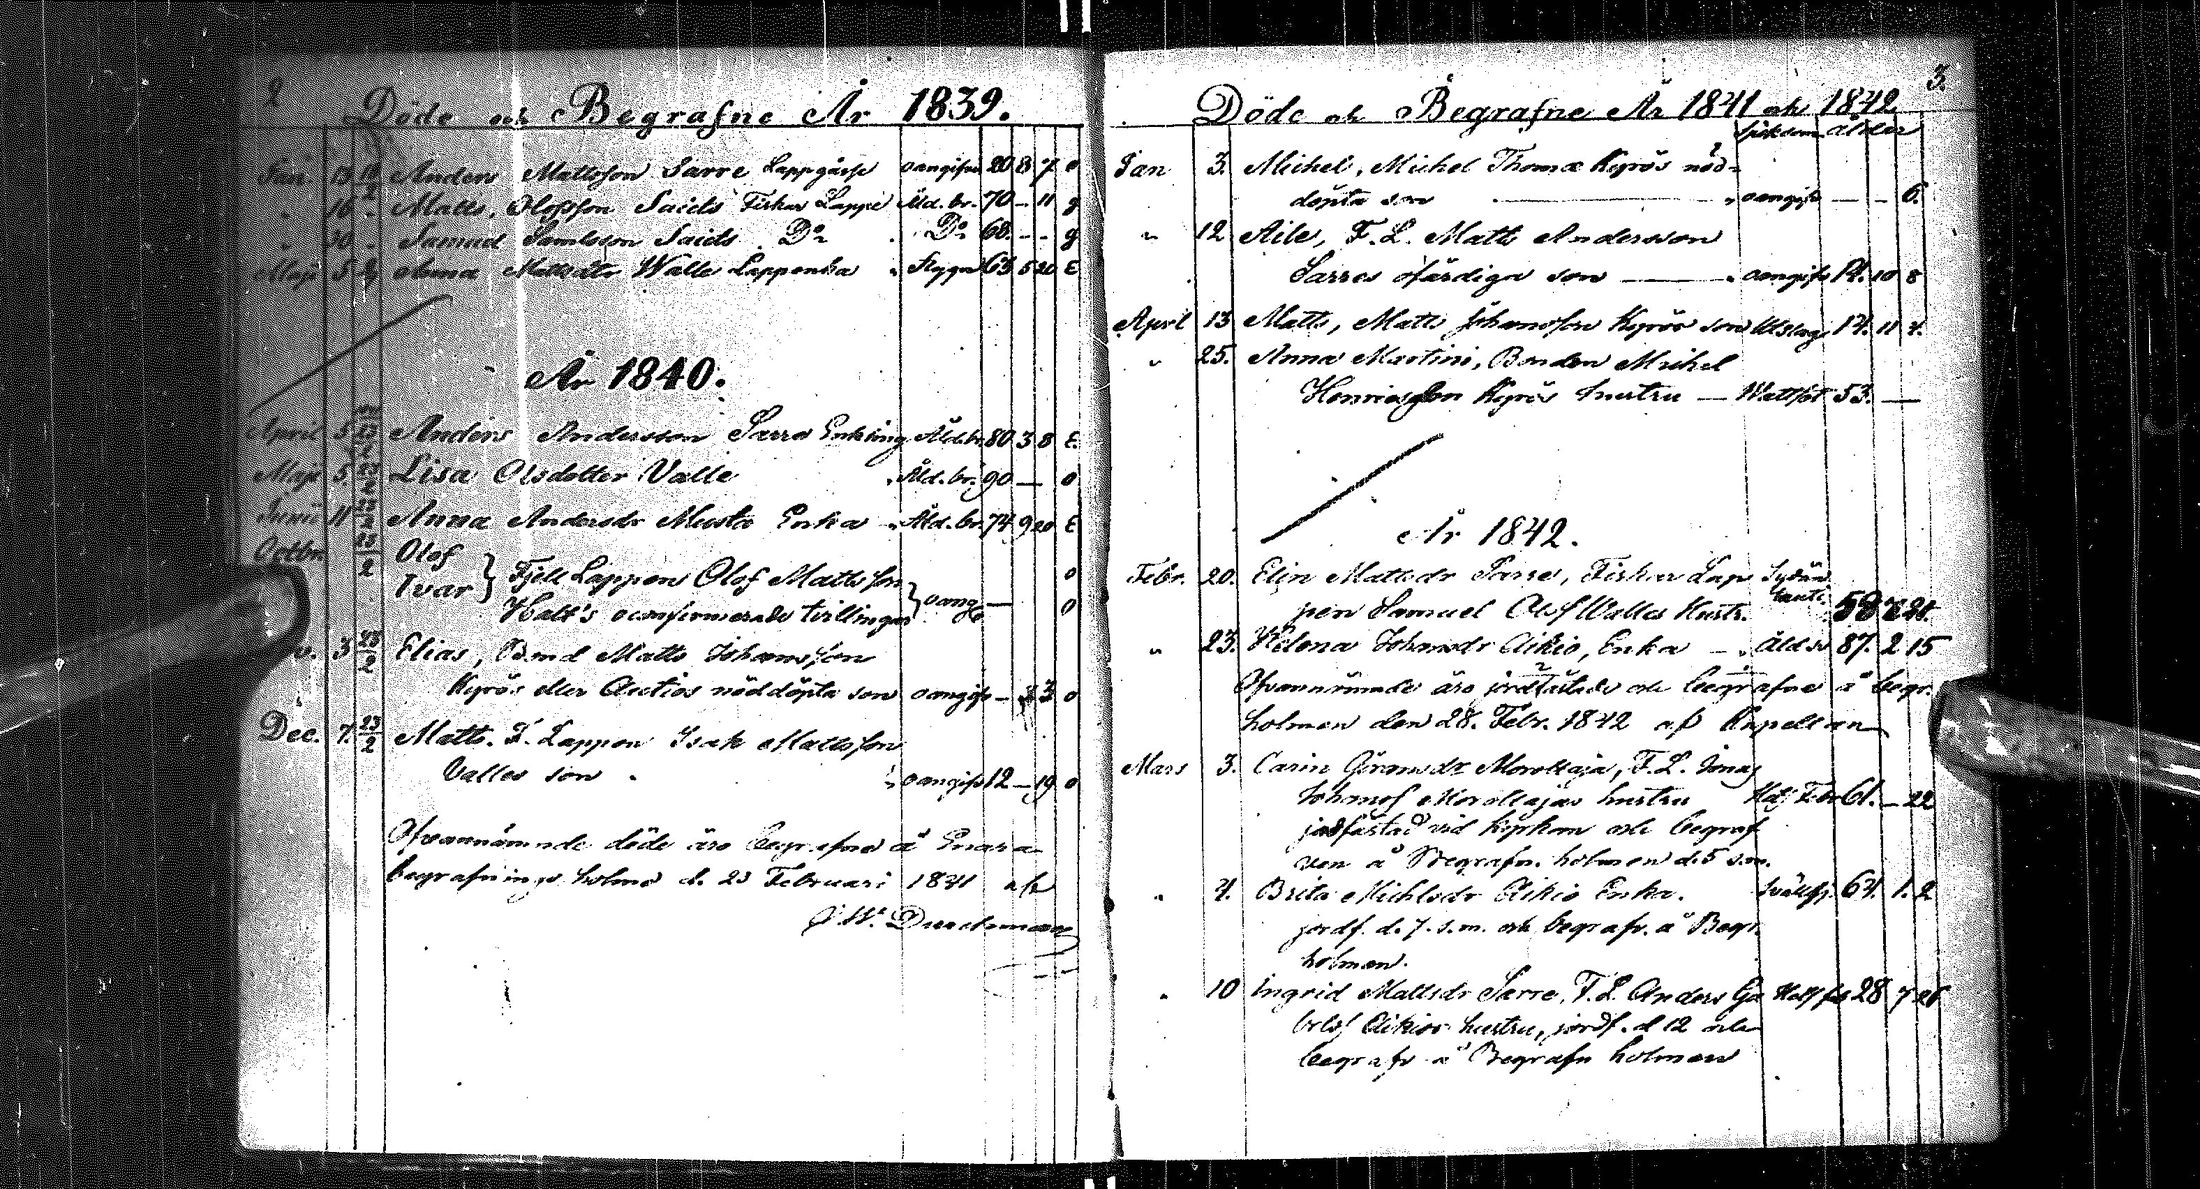 2
Döde och Begrafne År 1839.
Jan 13 Anders Mattsson Sarre Lappgåsse oangifve 20 8 7 o
" 16 - Matts Olofsson Saids Fiskar Lapp Åld. br. 70 - 11 g
" 30 - Samuel Samlsson Saids Do Do 68. - - g
Maji 5 Anna Mattsdtr Walle Lappenka " Flygn 63 5 20 E
År 1840.
April 5 23/2 Anders Andersson Sarre Enkling Åld.br. 80 3 8 E.
Maji 5. 23/2 Lisa Olsdotter Valle " Åld. br. 90 — o
Junii 11 23/2 Anna Andersdr Musta Enka " Åld. br. 74 9 20 E
Octbr. 23/2 Olof
Ivar } Fjell Lappen Olof Mattsson o
Halt's oconfirmerade tvillingar } oang. — o
3 23/2 Elias, Bond Matts Johansson
Kyrös eller Aictios nöddöpta son oangifv - 3 o
Dec. 7. 23/2 Matts. F. Lappen Isak Mattsson
Valles son. oangifv 12 - 19 o
Ofvannämnde döde äro begrafne å Enara
begrafnings holme d. 23 Februari 1841 af
3.
Döde och Begrafne År 1841 och 1842
Sjukdom ålder
Jan 3. Michel, Michel Thomæ Kyrös nöd-
döpta son — " oangifv — - 6.
" 12 Aile, F. L. Matts Andersson
Sarres ofärdiga son — " oangifv 14. 10 8
April 13 Matts, Matts Johansson Kyrös son Utslag 14. 11 4.
" 25. Anna Martini, Bonden Michel
Henricsson Kyrös hustru — Wattsot 53. —
År 1842.
Febr. 20. Elin Mattsdr Sarre, Fiskar Lap Sydän
pen Samuel Olofs Walles Hustr. tauti 58 7 21.
" 23. Helena Johansdr Aikio, Enka — " Åld sv 87. 2 15
Ofvannämnde äro jordfästade och begrafne å begr.
holmen den 28. Febr. 1842 af Kapellan
Mars 3. Carin Göransdr Morottaja, F. L. Jonas
Johansf Morottajas hustru Het Feb 61. — 22
jordfästad vid kyrkan och begraf
ven å Begrafn. holmen d. 5 s.m.
" 4. Brita Michlsdr Aikio Enka. 64. 1. 2
jordf. d. 7. s.m. och begrafv. å Begr.
holmen.
" 10 Ingrid Mattsdr Sarre, F. L. Anders Ga 28 7 26
brlsf Aikios hustru, jordf. d 12 och
begrafv å Begrafn holmen